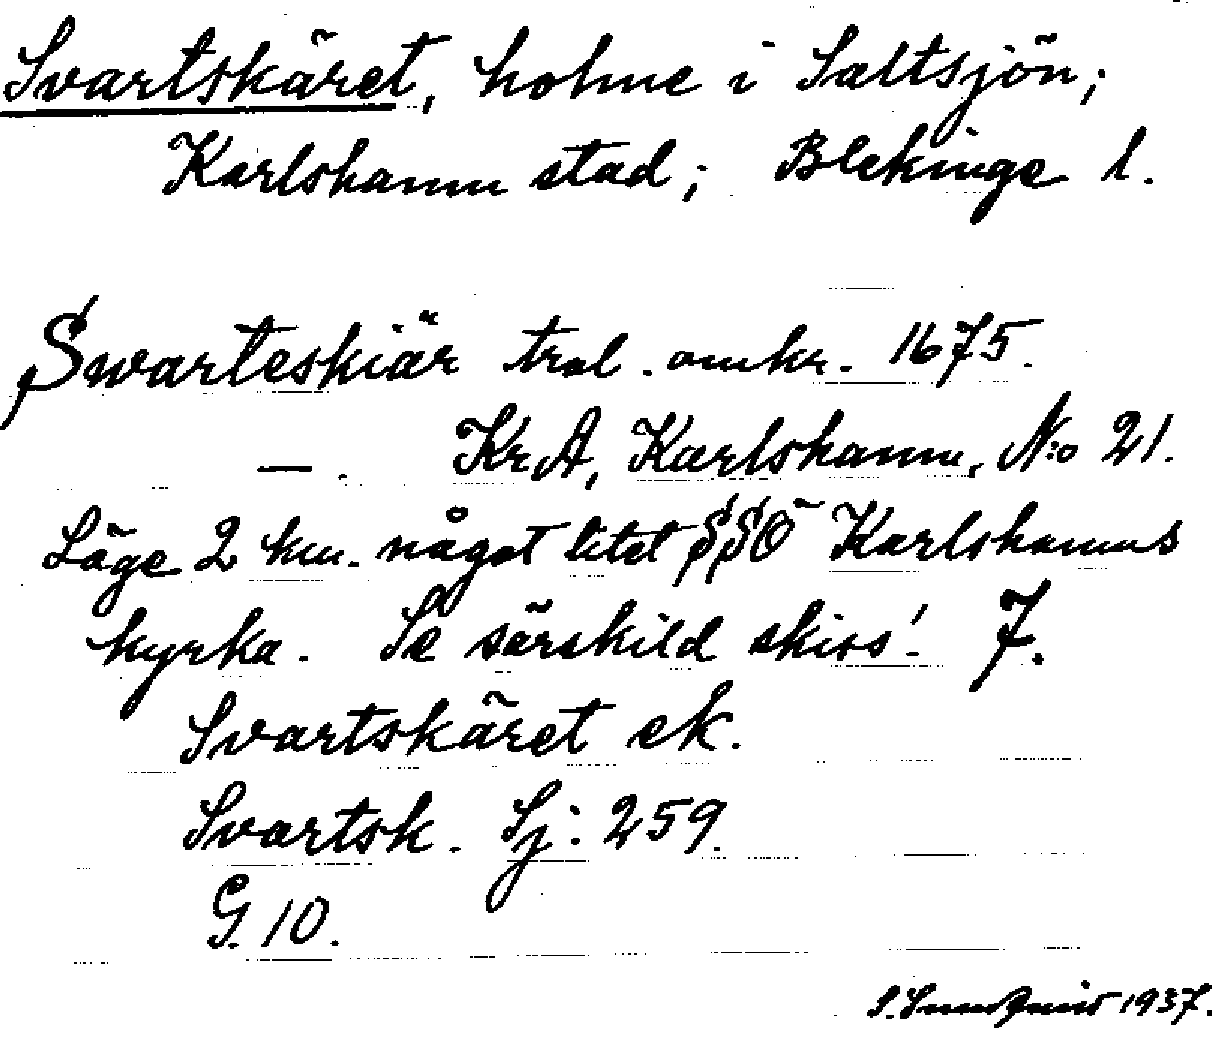 Svartskäret, holme i Saltsjön;
Karlshamn stad; Blekinge l.
Swarteskiär trol. omkr. 1675.
—. KrA, Karlshamn, N:o 21.
Läge 2 km. något litet SSÖ Karlshamns
kyrka. Se särskild skiss! 7.
Svartskäret ek.
Svartsk. Sj: 259.
G. 10.
S. Sundquist 1937.